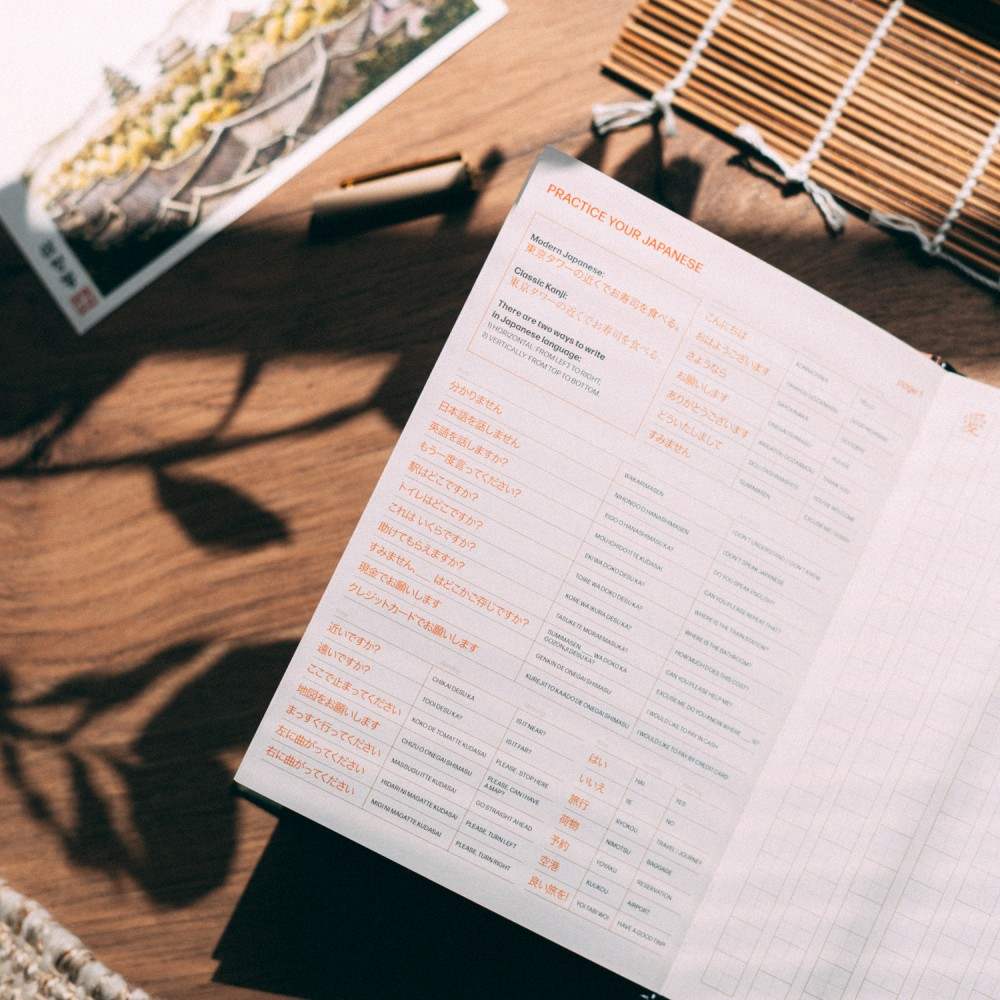 PRACTICE YOUR JAPANESE
Modern Japanese:
東京タワーの近くでお寿司を食べる。
Classic Kanji:
東京タワーの近くでお寿司を食べる。
There are two ways to write
in Japanese language:
1) HORIZONTAL: FROM LEFT TO RIGHT,
2) VERTICALLY: FROM TOP TO BOTTOM.
こんにちは
おはようございます
さようなら
お願いします
ありがとうございます
どういたしまして
すみません
SUMIMASEN
分かりません WAKARIMASEN I DON'T UNDERSTAND / I DON'T KNOW
日本語を話しません NIHONGO O HANASHIMASEN I DON'T SPEAK JAPANESE
英語を話しますか? EIGO O HANASHIMASU KA? DO YOU SPEAK ENGLISH?
もう一度言ってください? MOU ICHIDO ITTE KUDASAI CAN YOU PLEASE REPEAT THAT?
駅はどこですか? EKI WA DOKO DESU KA? WHERE IS THE TRAIN STATION?
トイレはどこですか? TOIRE WA DOKO DESU KA? WHERE IS THE BATHROOM?
これは いくらですか? KORE WA IKURA DESU KA? HOW MUCH DOES THIS COST?
助けてもらえますか? TASUKETE MORAEMASU KA? CAN YOU PLEASE HELP ME?
すみません、__はどこかご存じですか? SUMIMASEN,____WA DOKO KA GOZONJI DESU KA? EXCUSE ME, DO YOU KNOW WHERE ____ IS?
現金でお願いします GENKIN DE ONEGAI SHIMASU I WOULD LIKE TO PAY IN CASH
クレジットカードでお願いします KUREJITTO KAADO DE ONEGAI SHIMASU I WOULD LIKE TO PAY BY CREDIT CARD
近いですか? CHIKAI DESU KA IS IT NEAR?
遠いですか? TOOI DESU KA? IS IT FAR?
ここで止まってください KOKO DE TOMATTE KUDASAI PLEASE, STOP HERE
地図をお願いします CHIZU O ONEGAI SHIMASU PLEASE, CAN I HAVE A MAP?
まっすぐ行ってください MASSUGU ITTE KUDASAI GO STRAIGHT AHEAD
左に曲がってください HIDARI NI MAGATTE KUDASAI PLEASE, TURN LEFT
右に曲がってください MIGI NI MAGATTE KUDASAI PLEASE, TURN RIGHT
はい HAI YES
いいえ IIE NO
旅行 RYOKOU TRAVEL / JOURNEY
荷物 NIMOTSU BAGGAGE
予約 YOYAKU RESERVATION
空港 KUUKOU AIRPORT
良い旅を! YOI TABI WO! HAVE A GOOD TRIP!
愛